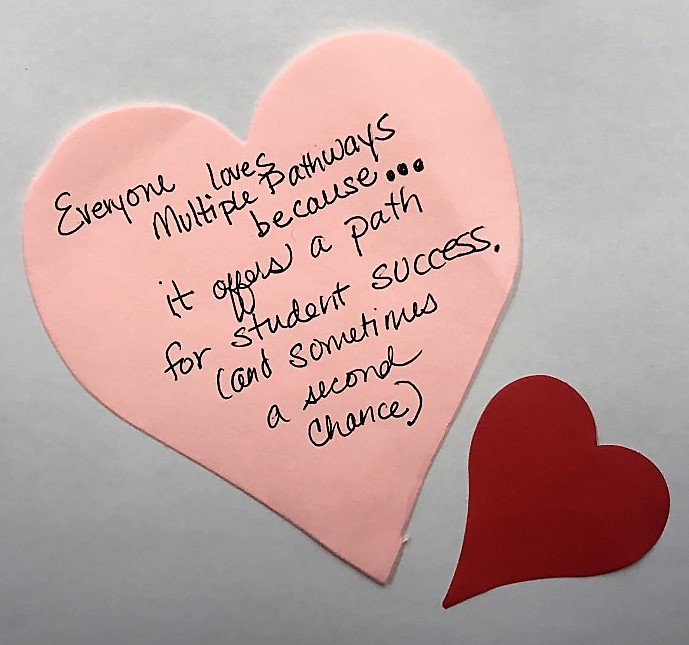 Everyone loves
Multiple Pathways
because...
it offers a path
for student success.
(and sometimes
a second
chance)